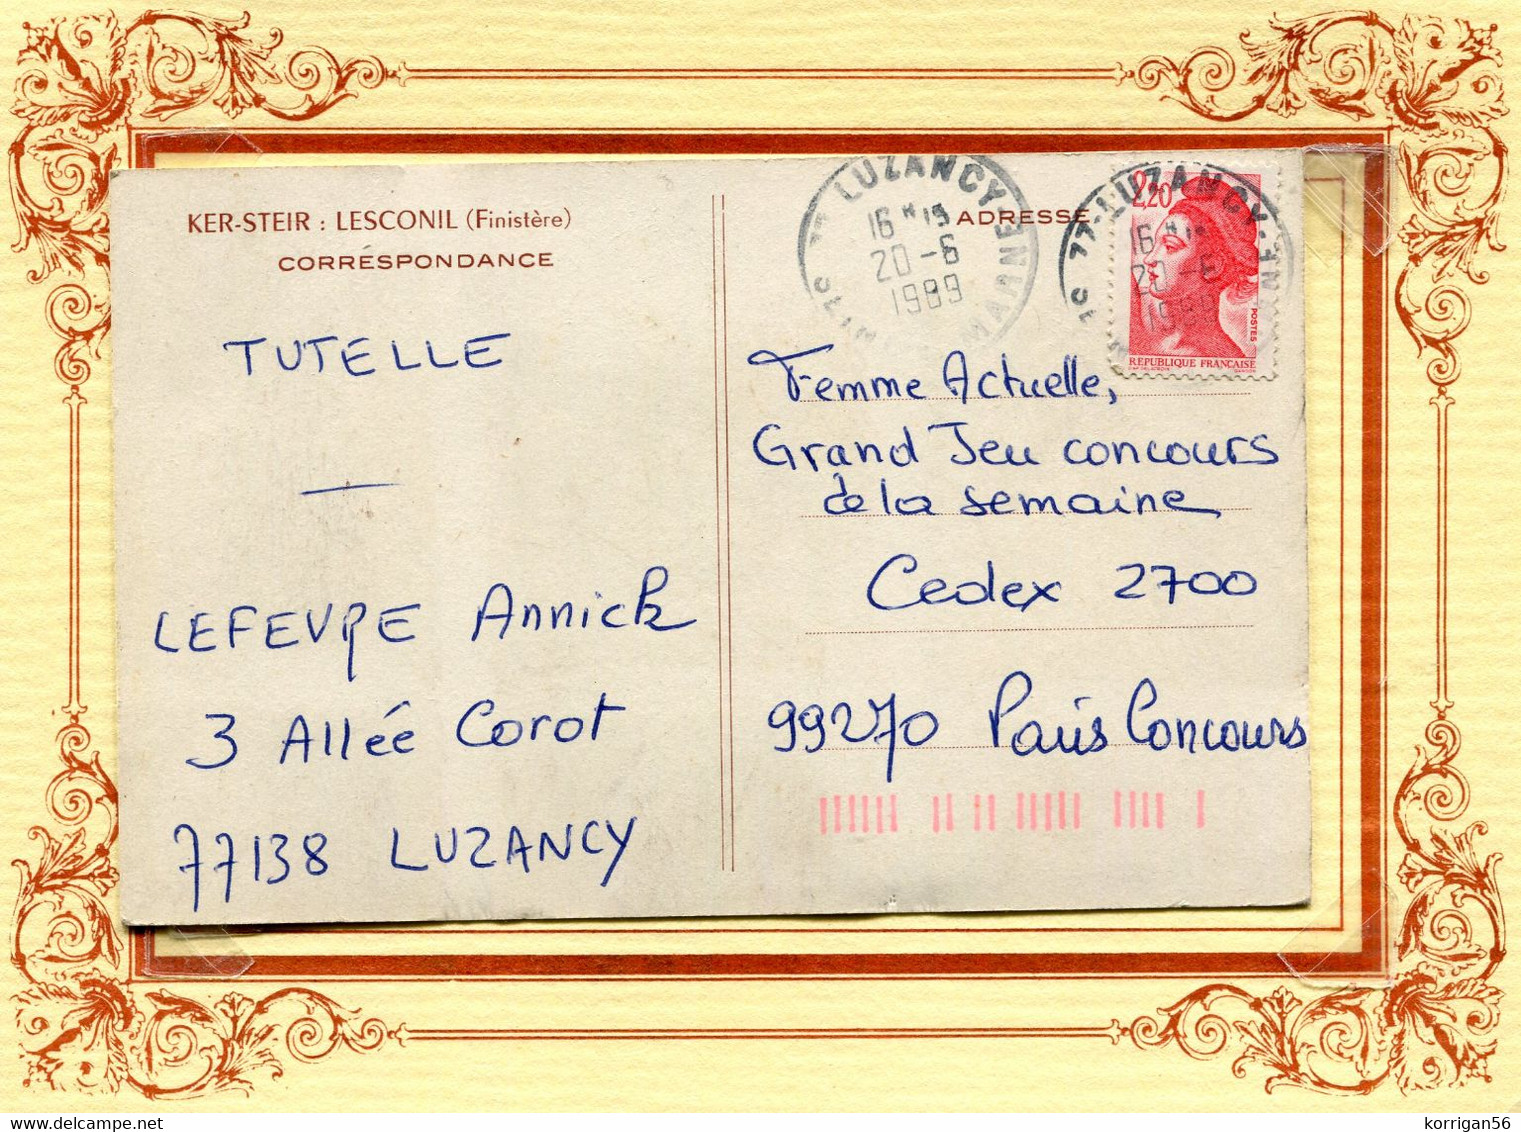 KER-STEIR : LESCONIL (Finistère)
CORRÉSPONDANCE
TUTELLE
LEFEVRE Annick
3 Allée Corot
77138 LUZANCY
77 LUZANCY
16 H 15
20-6
1989
MARNE
ADRESSE
77-LUZANCY
16 H
20-6
2,20
POSTES
REPUBLIQUE FRANÇAISE
Femme Actuelle,
Grand Jeu concours
de la semaine
Cedex 2700
99270 Paris Concours
korrigan56